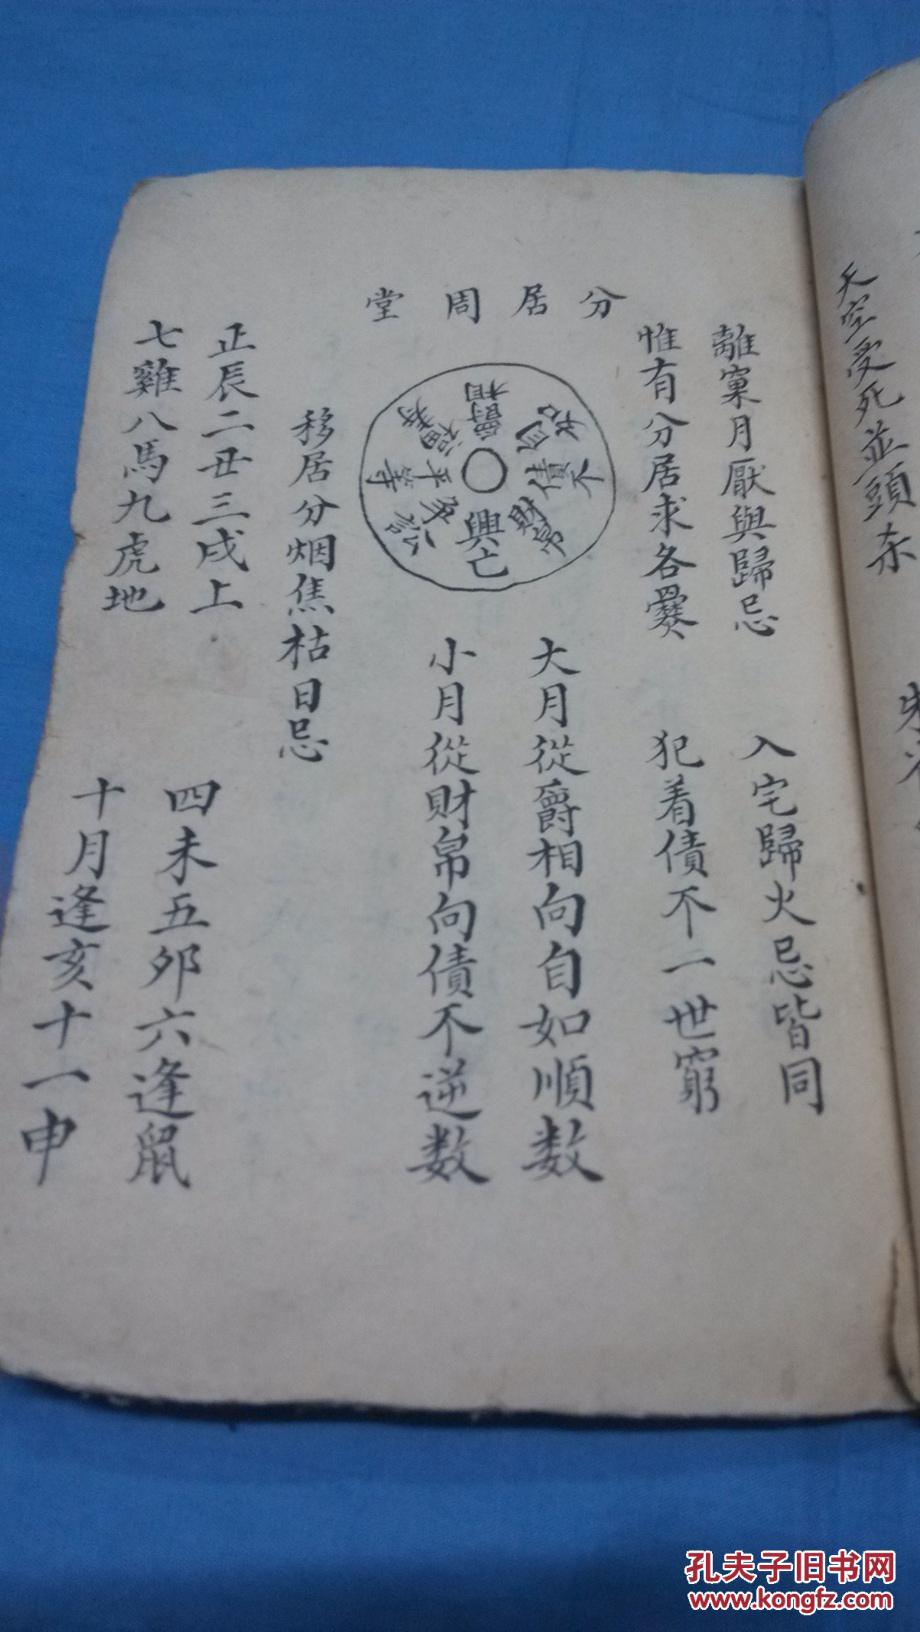 天空受死並頭杀
離窠月厭與歸忌
入宅歸火忌皆同
惟有分居求各爨
犯着債不一世窮
分居周堂
爵相
自如
債不
財帛
興亡
爭訟
平等
福寿
大月從爵相向自如順数
小月從財帛向債不逆数
移居分烟焦枯日忌
正辰二丑三戌上
四未五夘六逢鼠
七雞八馬九虎地
十月逢亥十一申
孔夫子旧书网
www.kongfz.com